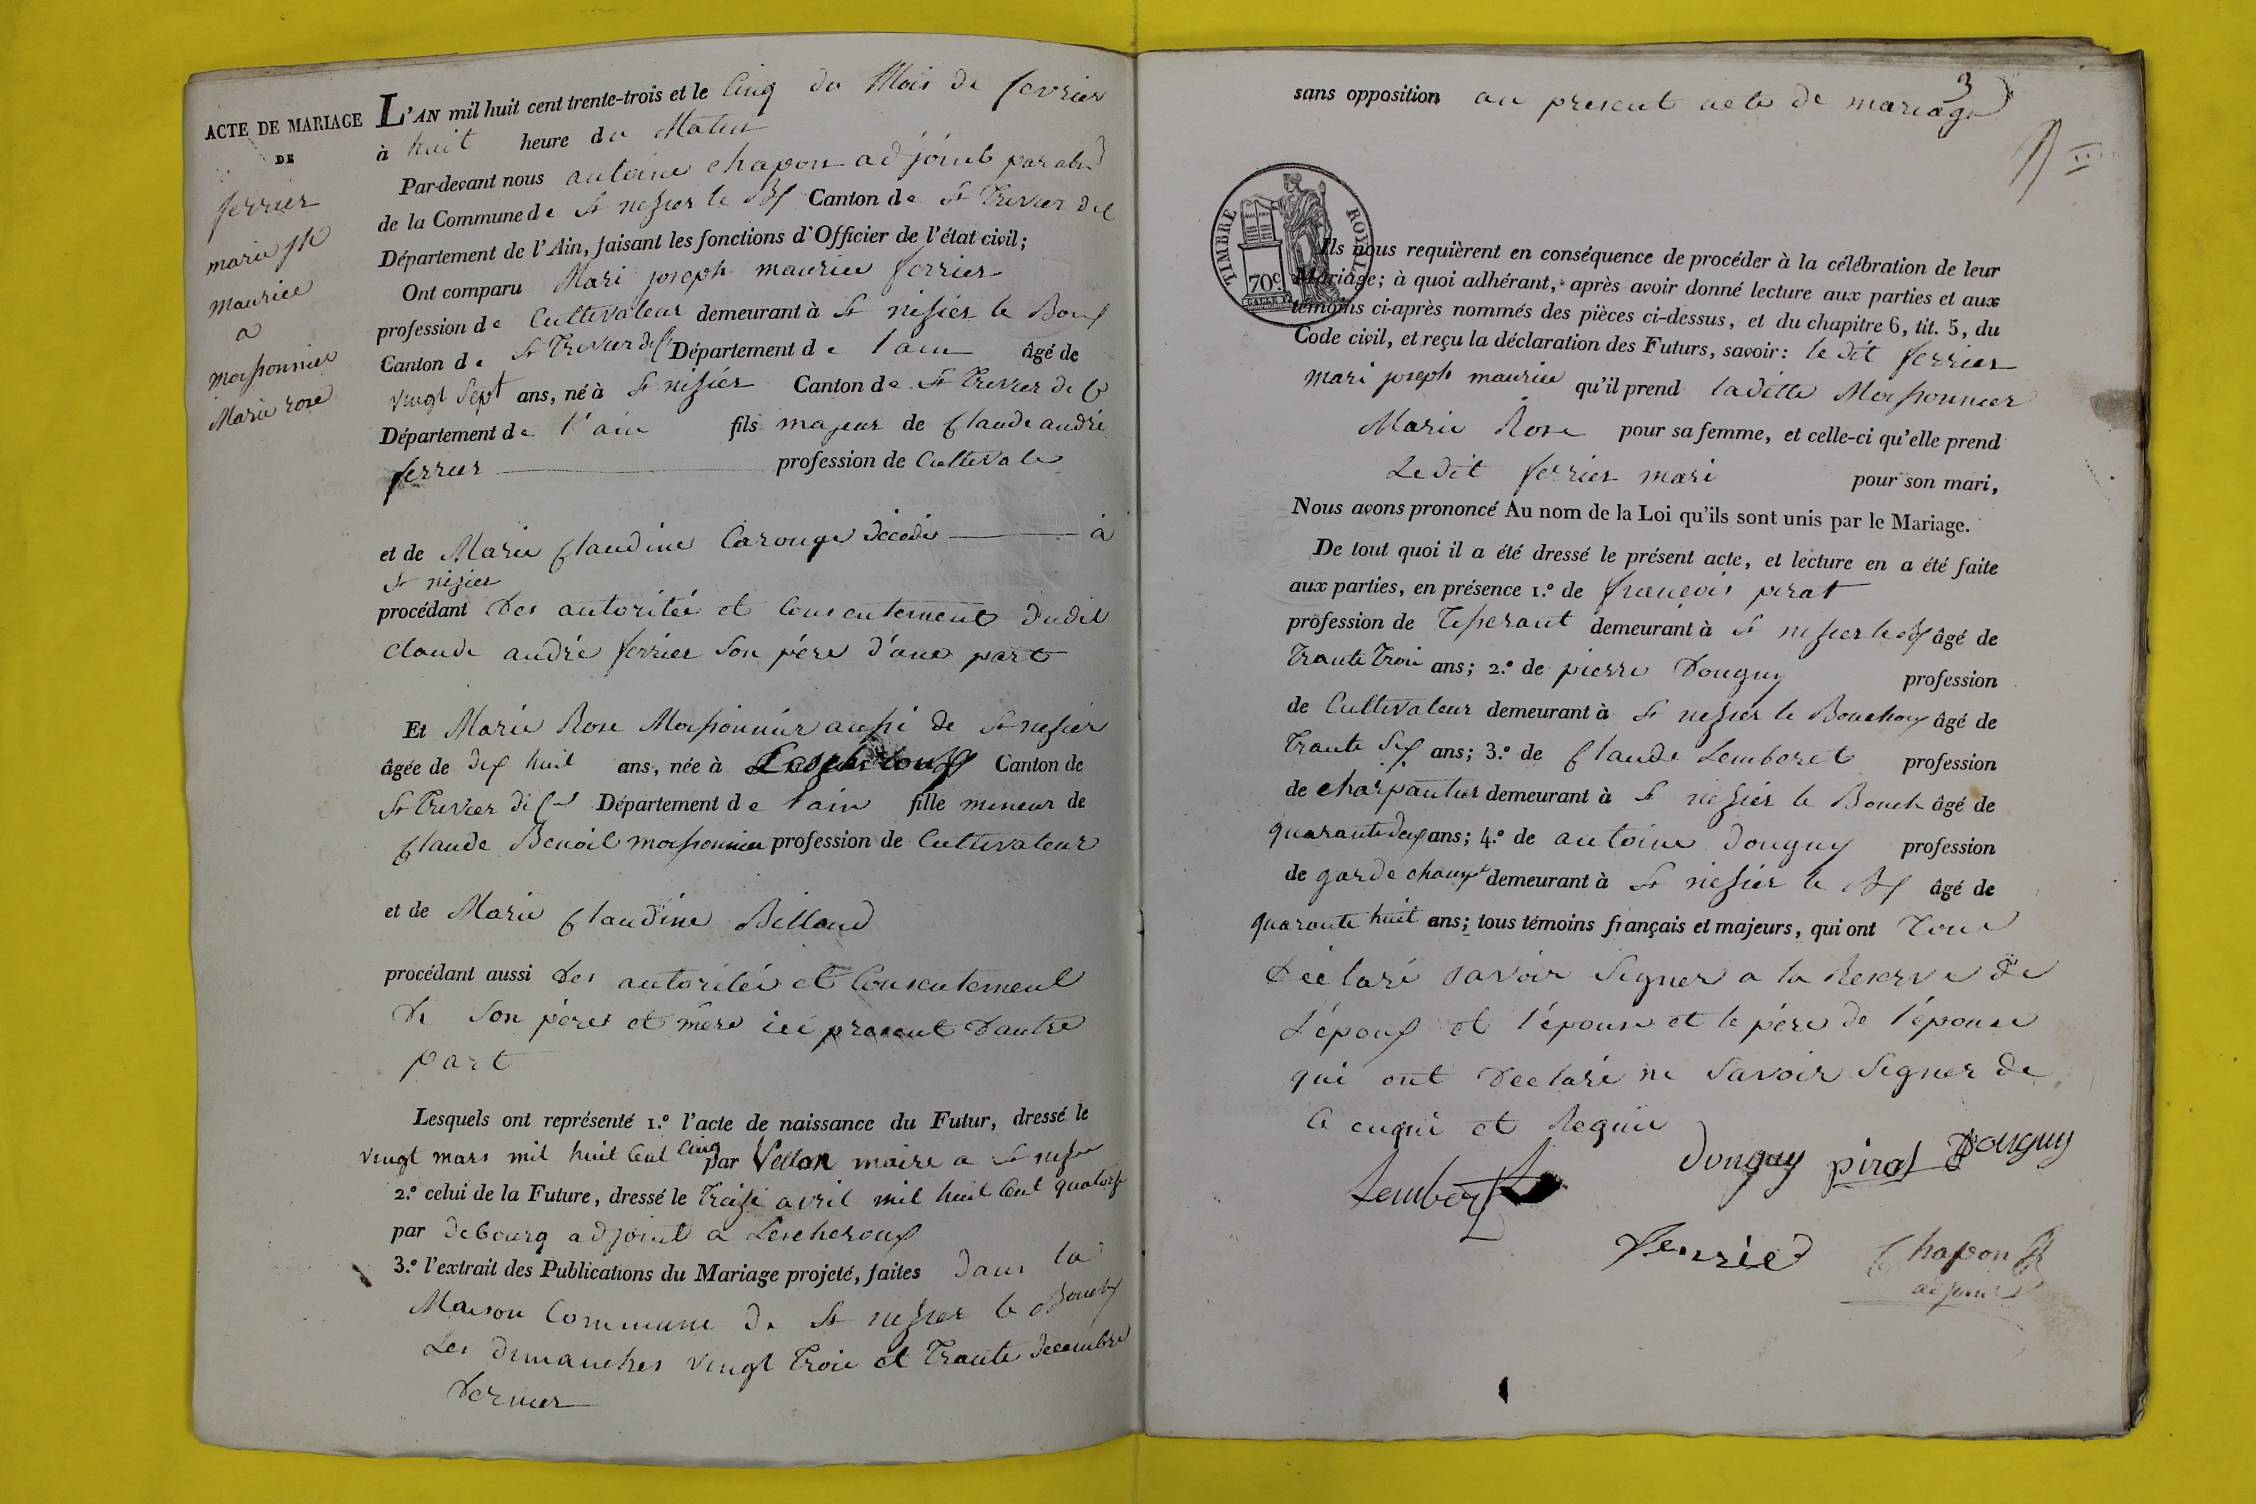 ACTE DE MARIAGE
DE
ferrier
marie jh
maurice
a
moissonnier
Marie rose
L'AN mil huit cent trente-trois et le Cinq du Mois de fevrier
à huit heure du Matin
Par-devant nous antoine chapon adjoint par
de la Commune de St nessier le Bx Canton de St Trivier de C
Département de l'Ain, faisant les fonctions d'Officier de l'état civil;
Ont comparu Mari joseph maurice ferrier
profession de Cultivateur demeurant à St nisier le Boux
Canton de St Trivier de C Département de l ain âgé de
vingt sept ans, né à St nisiér Canton de St Trivier de C
Département de l'ain fils majeur de Claude andré
ferrier profession de Cultivate
et de Marie Claudine Carouge décédé à
St nizier
procédant des autorité et Consentement dudit
Claude andré ferrier son pére d'une part
Et Marie Rose Moissonnier aussi de St nesier
âgée de dix huit ans, née à Lescheroux Canton de
St Trivier de C Département de l'ain fille mineur de
Claude Benoit moissonnier profession de Cultivateur
et de Marie Claudine Billoud
procédant aussi des autorité et Consentement
de Son péres et mére ici present d'autre
part
Lesquels ont représenté 1.º l'acte de naissance du Futur, dressé le
vingt mars mil huit Cent Cinq par Vellon maire a St nesier
2.º celui de la Future, dressé le Traise avril mil huit Cent quatorze
par debourg adjoint a Lescheroux
3.º l'extrait des Publications du Mariage projeté, faites dans la
Maison Commune de St nessier le Bouchx
Les dimanches vingt Trois et Trante decembre
dernier
3
sans opposition au present acte de mariage
TIMBRE ROYAL
70c
Ils nous requièrent en conséquence de procéder à la célébration de leur
Mariage; à quoi adhérant, après avoir donné lecture aux parties et aux
témoins ci-après nommés des pièces ci-dessus, et du chapitre 6, tit. 5, du
Code civil, et reçu la déclaration des Futurs, savoir: le dit ferrier
mari joseph maurice qu'il prend laditte Moissonnier
Marie Rose pour sa femme, et celle-ci qu'elle prend
Ledit ferrier mari pour son mari,
Nous avons prononcé Au nom de la Loi qu'ils sont unis par le Mariage.
De tout quoi il a été dressé le présent acte, et lecture en a été faite
aux parties, en présence 1.º de françois pirat
profession de Tisserant demeurant à St nessier le Bx âgé de
Trante Trois ans; 2.º de pierre Donguy profession
de Cultivateur demeurant à St nessier le Bouchoux âgé de
Trante Six ans; 3.º de Claude Lemberet profession
de charpantier demeurant à St nessiér le Bouch âgé de
quarante deux ans; 4.º de antoine donguy profession
de garde champt demeurant à St nessiér le Bx âgé de
quarante huit ans; tous témoins français et majeurs, qui ont Tous
déclaré savoir Signer a la Reserve de
L'époux et l'épouse et le pére de l'épouse
qui ont declaré ne savoir Signer de
Ce enquis et Requis
donguy pirat Donguy
Lember
ferrier Chapon
adjoint